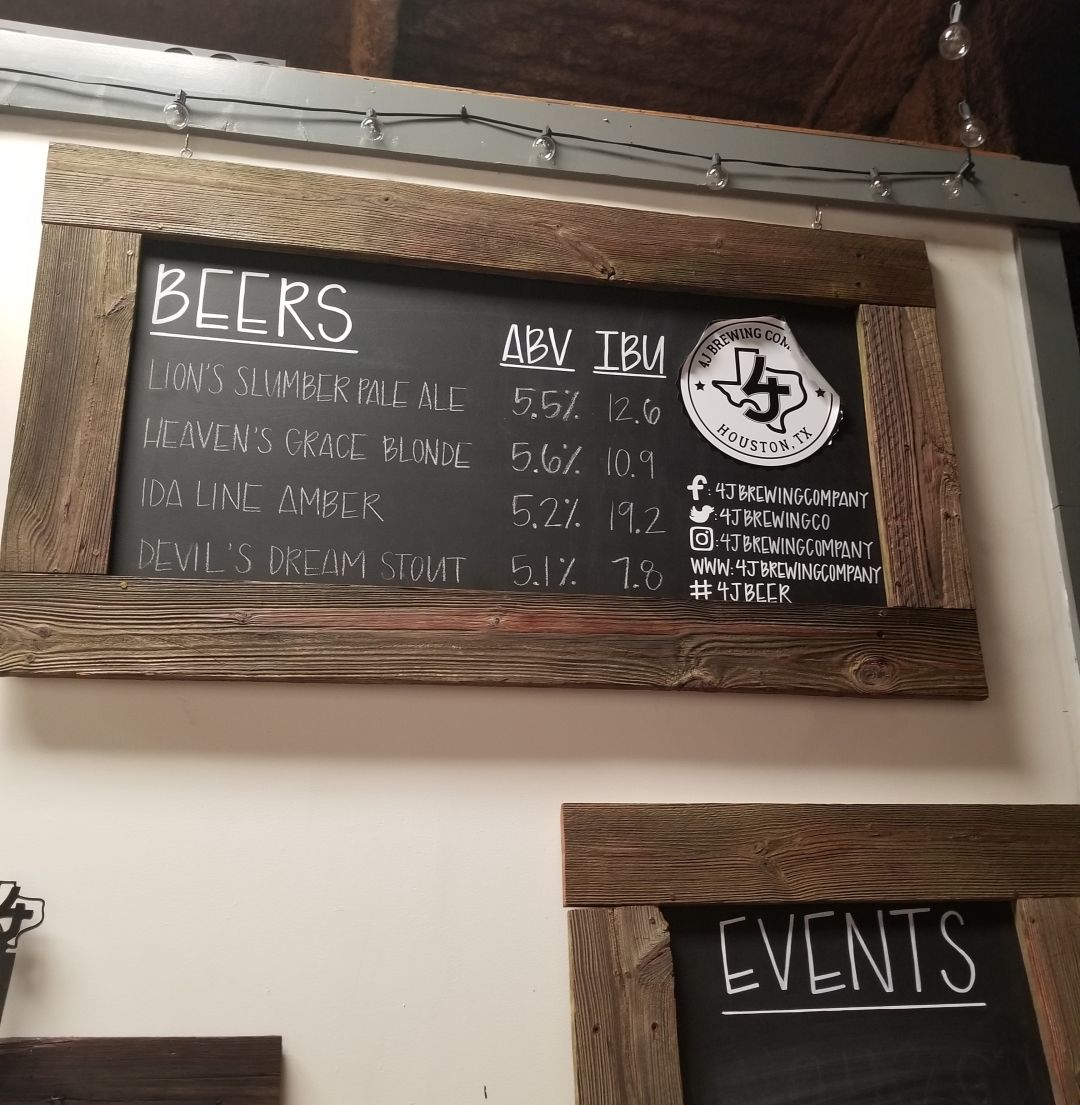 BEERS
ABV IBU
LION'S SLUMBER PALE ALE 5.5% 12.6
HEAVEN'S GRACE BLONDE 5.6% 10.9
IDA LINE AMBER 5.2% 19.2
DEVIL'S DREAM STOUT 5.1% 7.8
4J BREWING
4J
HOUSTON, TX
f: 4JBREWINGCOMPANY
: 4JBREWINGCO
: 4JBREWINGCOMPANY
WWW.4JBREWINGCOMPANY
#4JBEER
4
EVENTS